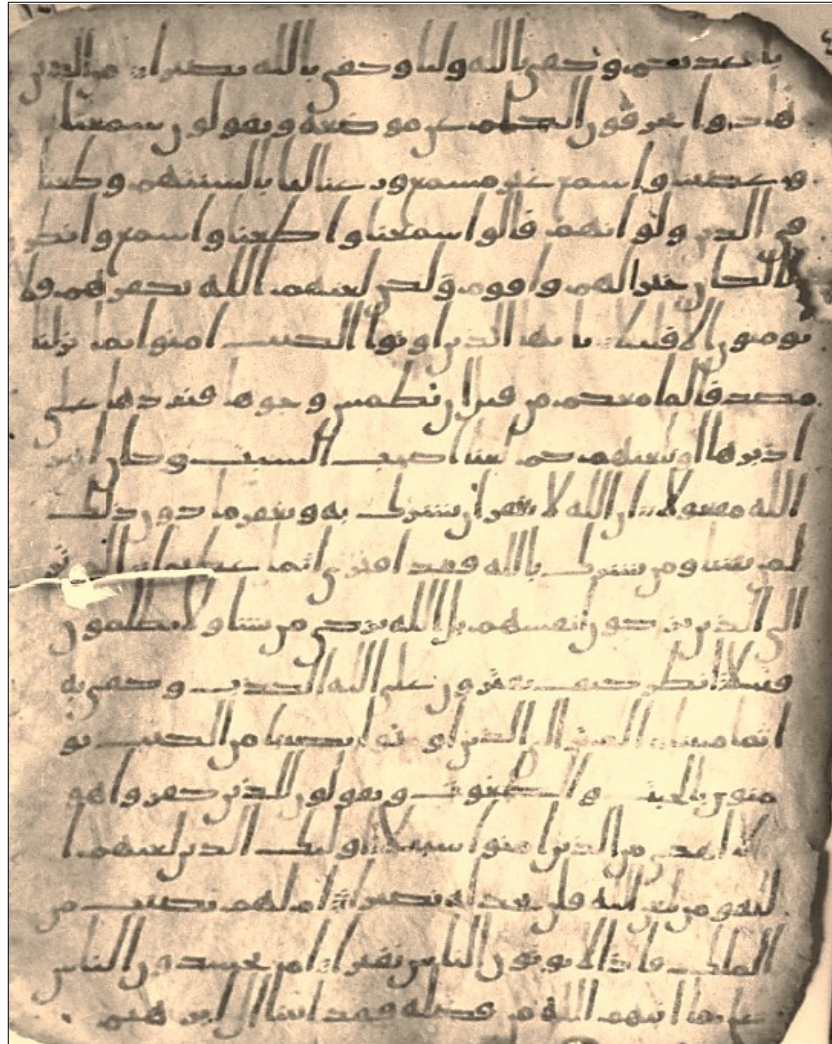 باعدىكم وكفى بالله وليا وكفى بالله نصيرا من الذين
هادوا يحرفون الكلم عن موضعه ويقولون سمعنا
وعصينا واسمع غير مسمع ورعنا ليا بالسنتهم وطعنا
في الدين ولو انهم قالوا سمعنا واطعنا واسمع وانظر
نا لكان خيرا لهم واقوم ولكن لعنهم الله بكفرهم فلا
يومنون الا قليلا يايها الذين اوتوا الكتب امنوا بما نزلنا
مصدقا لما معكم من قبل ان نطمس وجوها فنردها على
ادبرها او نلعنهم كما لعنا اصحب السبت وكان امر
الله مفعولا ان الله لا يغفر ان يشرك به ويغفر ما دون ذلك
لمن يشا ومن يشرك بالله فقد افترى اثما عظيما الم تر
الى الذين يزكون انفسهم بل الله يزكي من يشا ولا يظلمون
فتيلا انظر كيف يفترون على الله الكذب وكفى به
اثما مبينا الم تر الى الذين اوتوا نصيبا من الكتب يو
منون بالجبت والطغوت ويقولون للذين كفروا هو
لا اهدى من الذين امنوا سبيلا اوليك الذين لعنهم ا
لله ومن يلعن الله فلن تجد له نصيرا ام لهم نصيب من
الملك فاذا لا يوتون الناس نقيرا ام يحسدون الناس
على ما اتيهم الله من فضله فقد اتينا ال ابرهيم